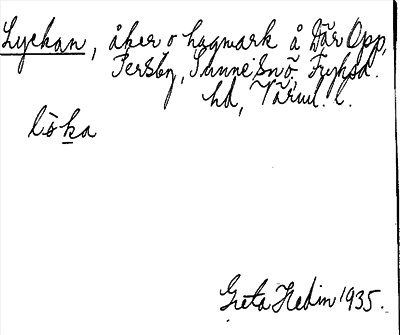 Lyckan, åker o hagmark å Där Opp,
Persby, Sunne sn ö, Fryksd.
hd, Värml. l.
lö̀ka
Greta Hedin 1935.